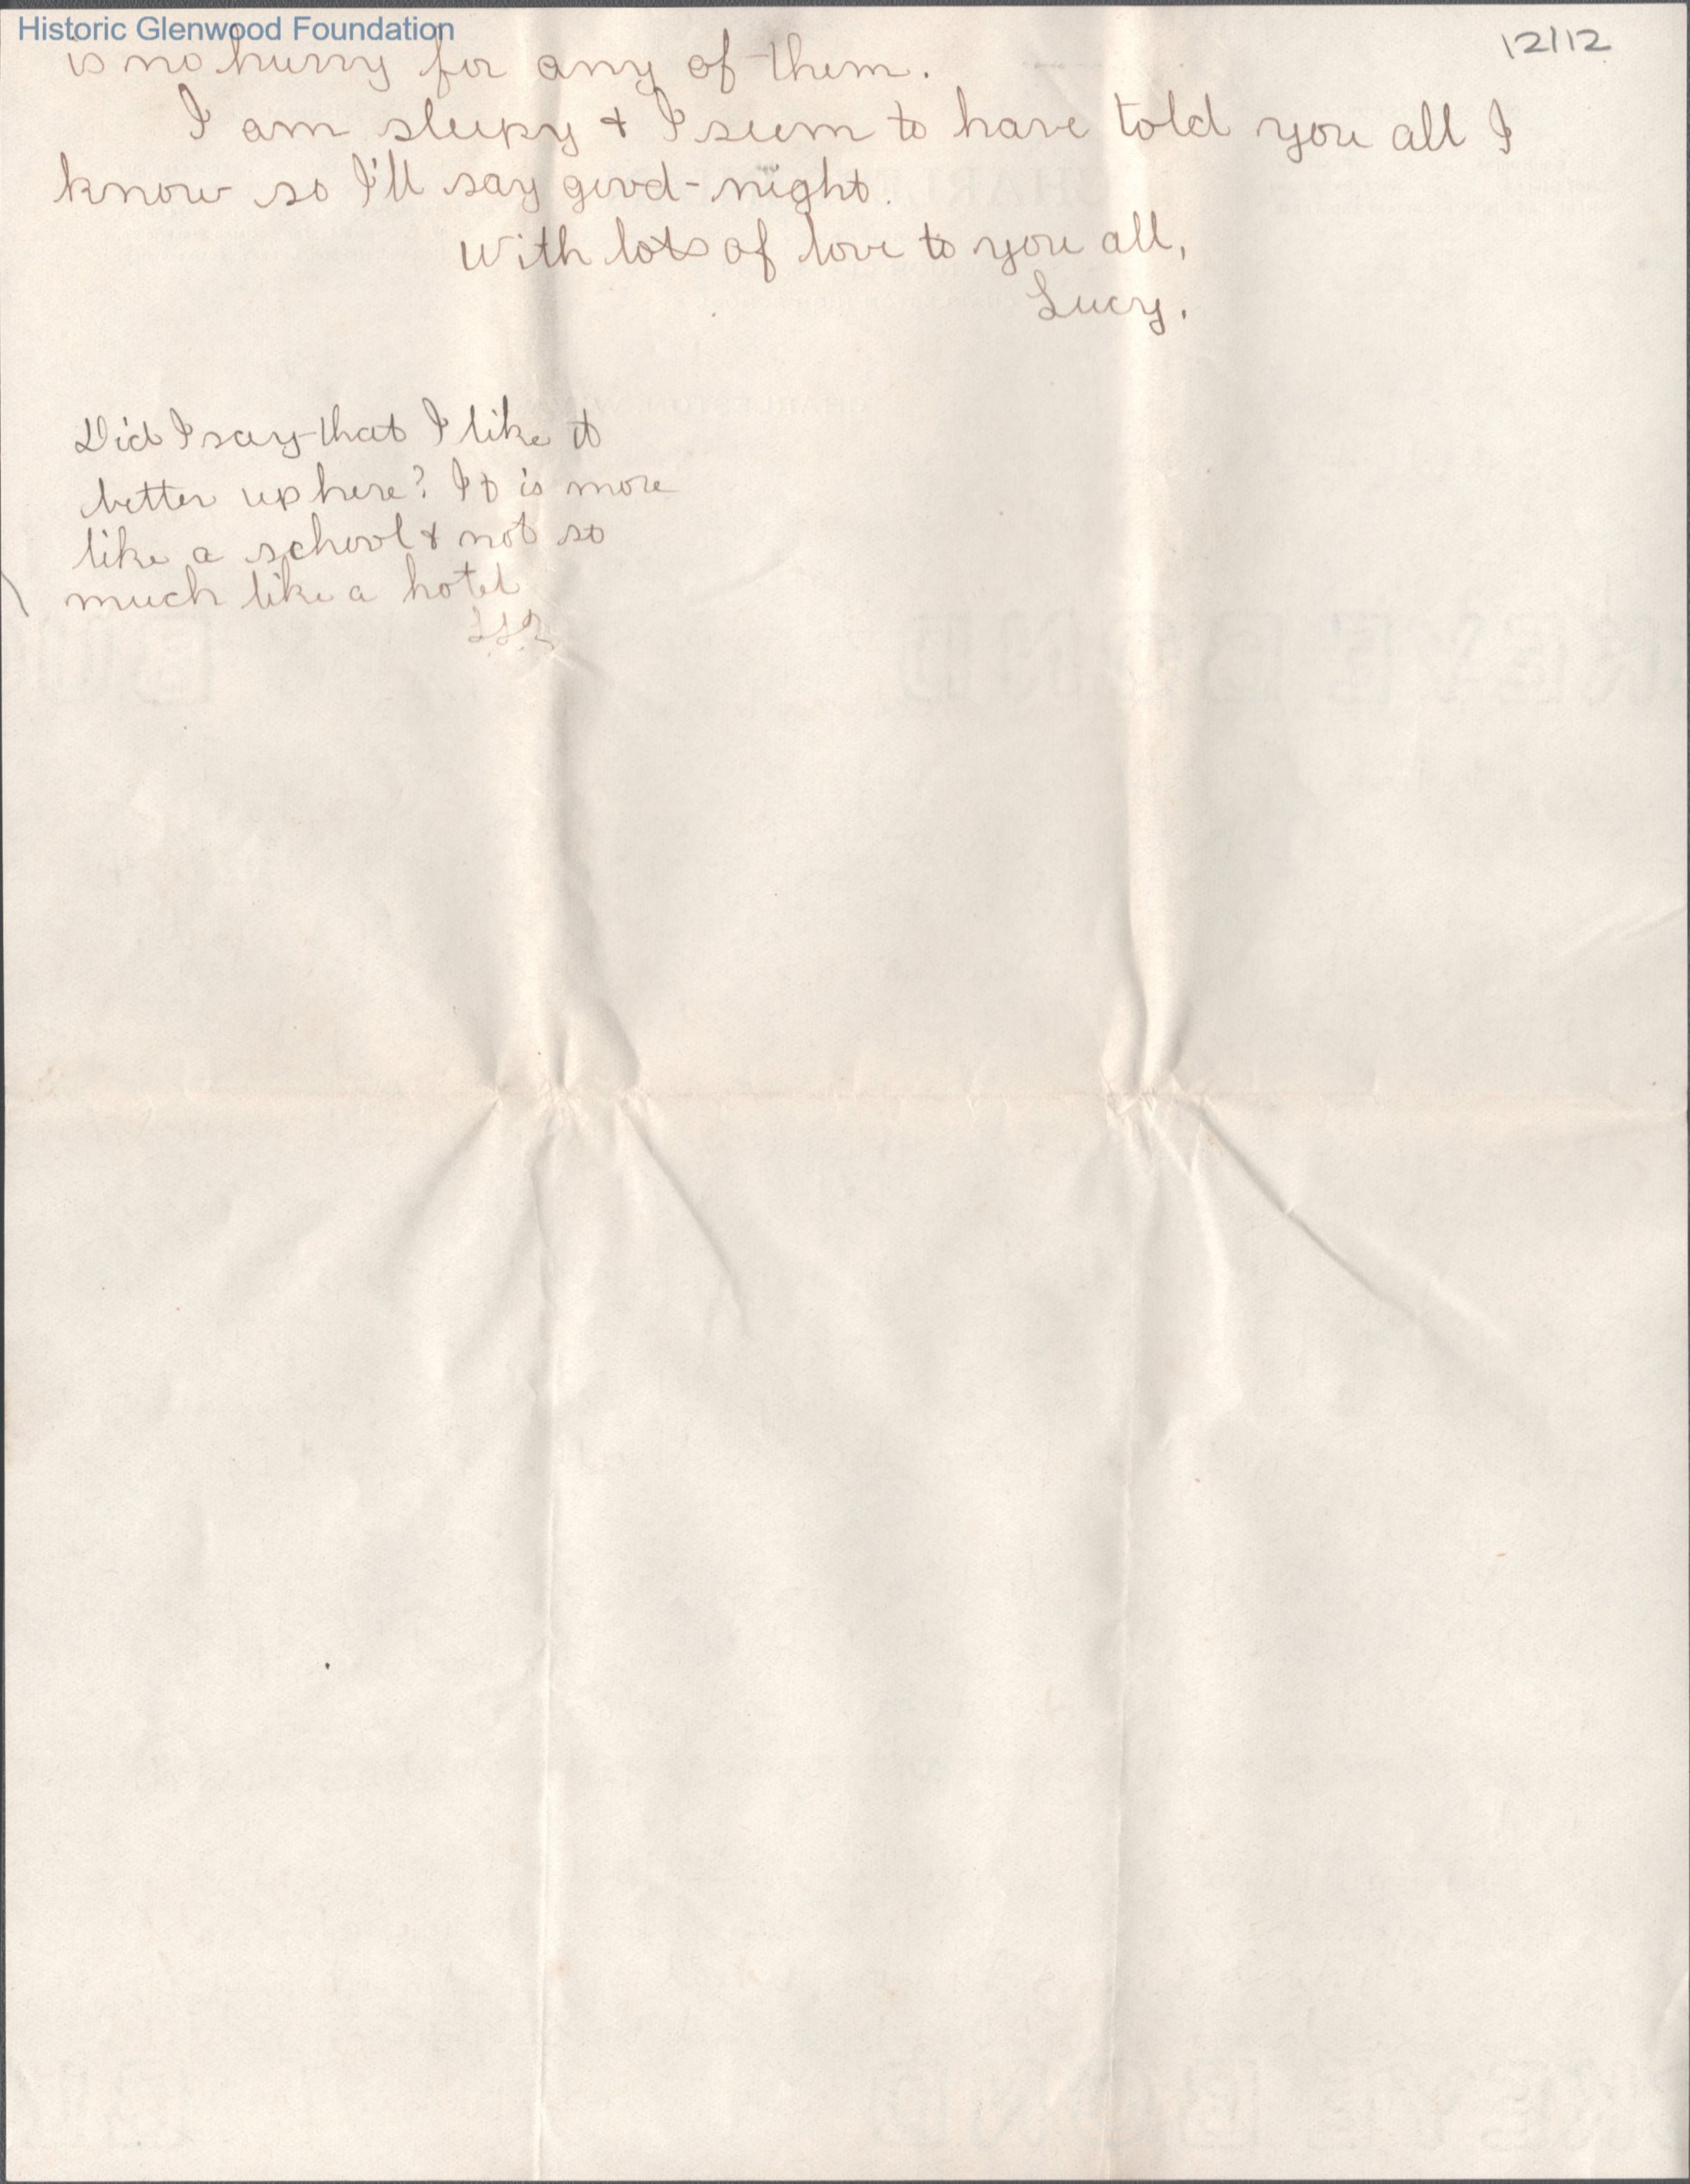 Historic Glenwood Foundation
12/12
is no hurry for any of them.
I am sleepy & I seem to have told you all I
know so I'll say good-night.
With lots of love to you all,
Lucy.
Did I say that I like it
better up here? It is more
like a school & not so
much like a hotel